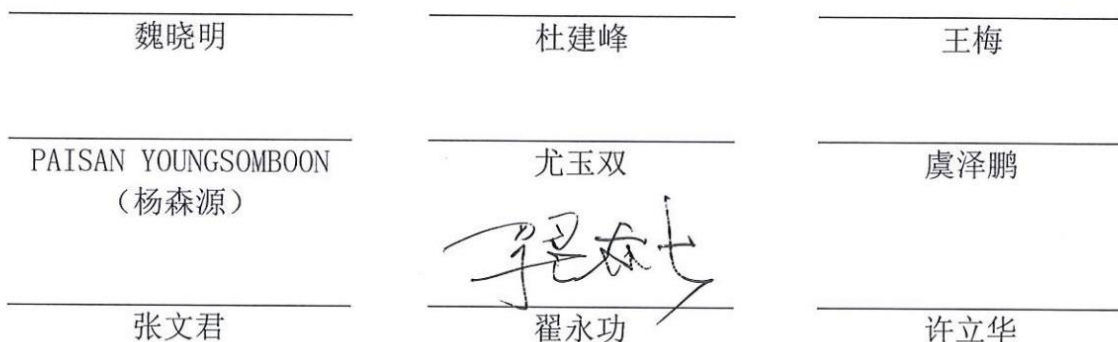 魏晓明 杜建峰 王梅
PAISAN YOUNGSOMBOON 尤玉双 虞泽鹏
（杨森源）
张文君 翟永功 许立华